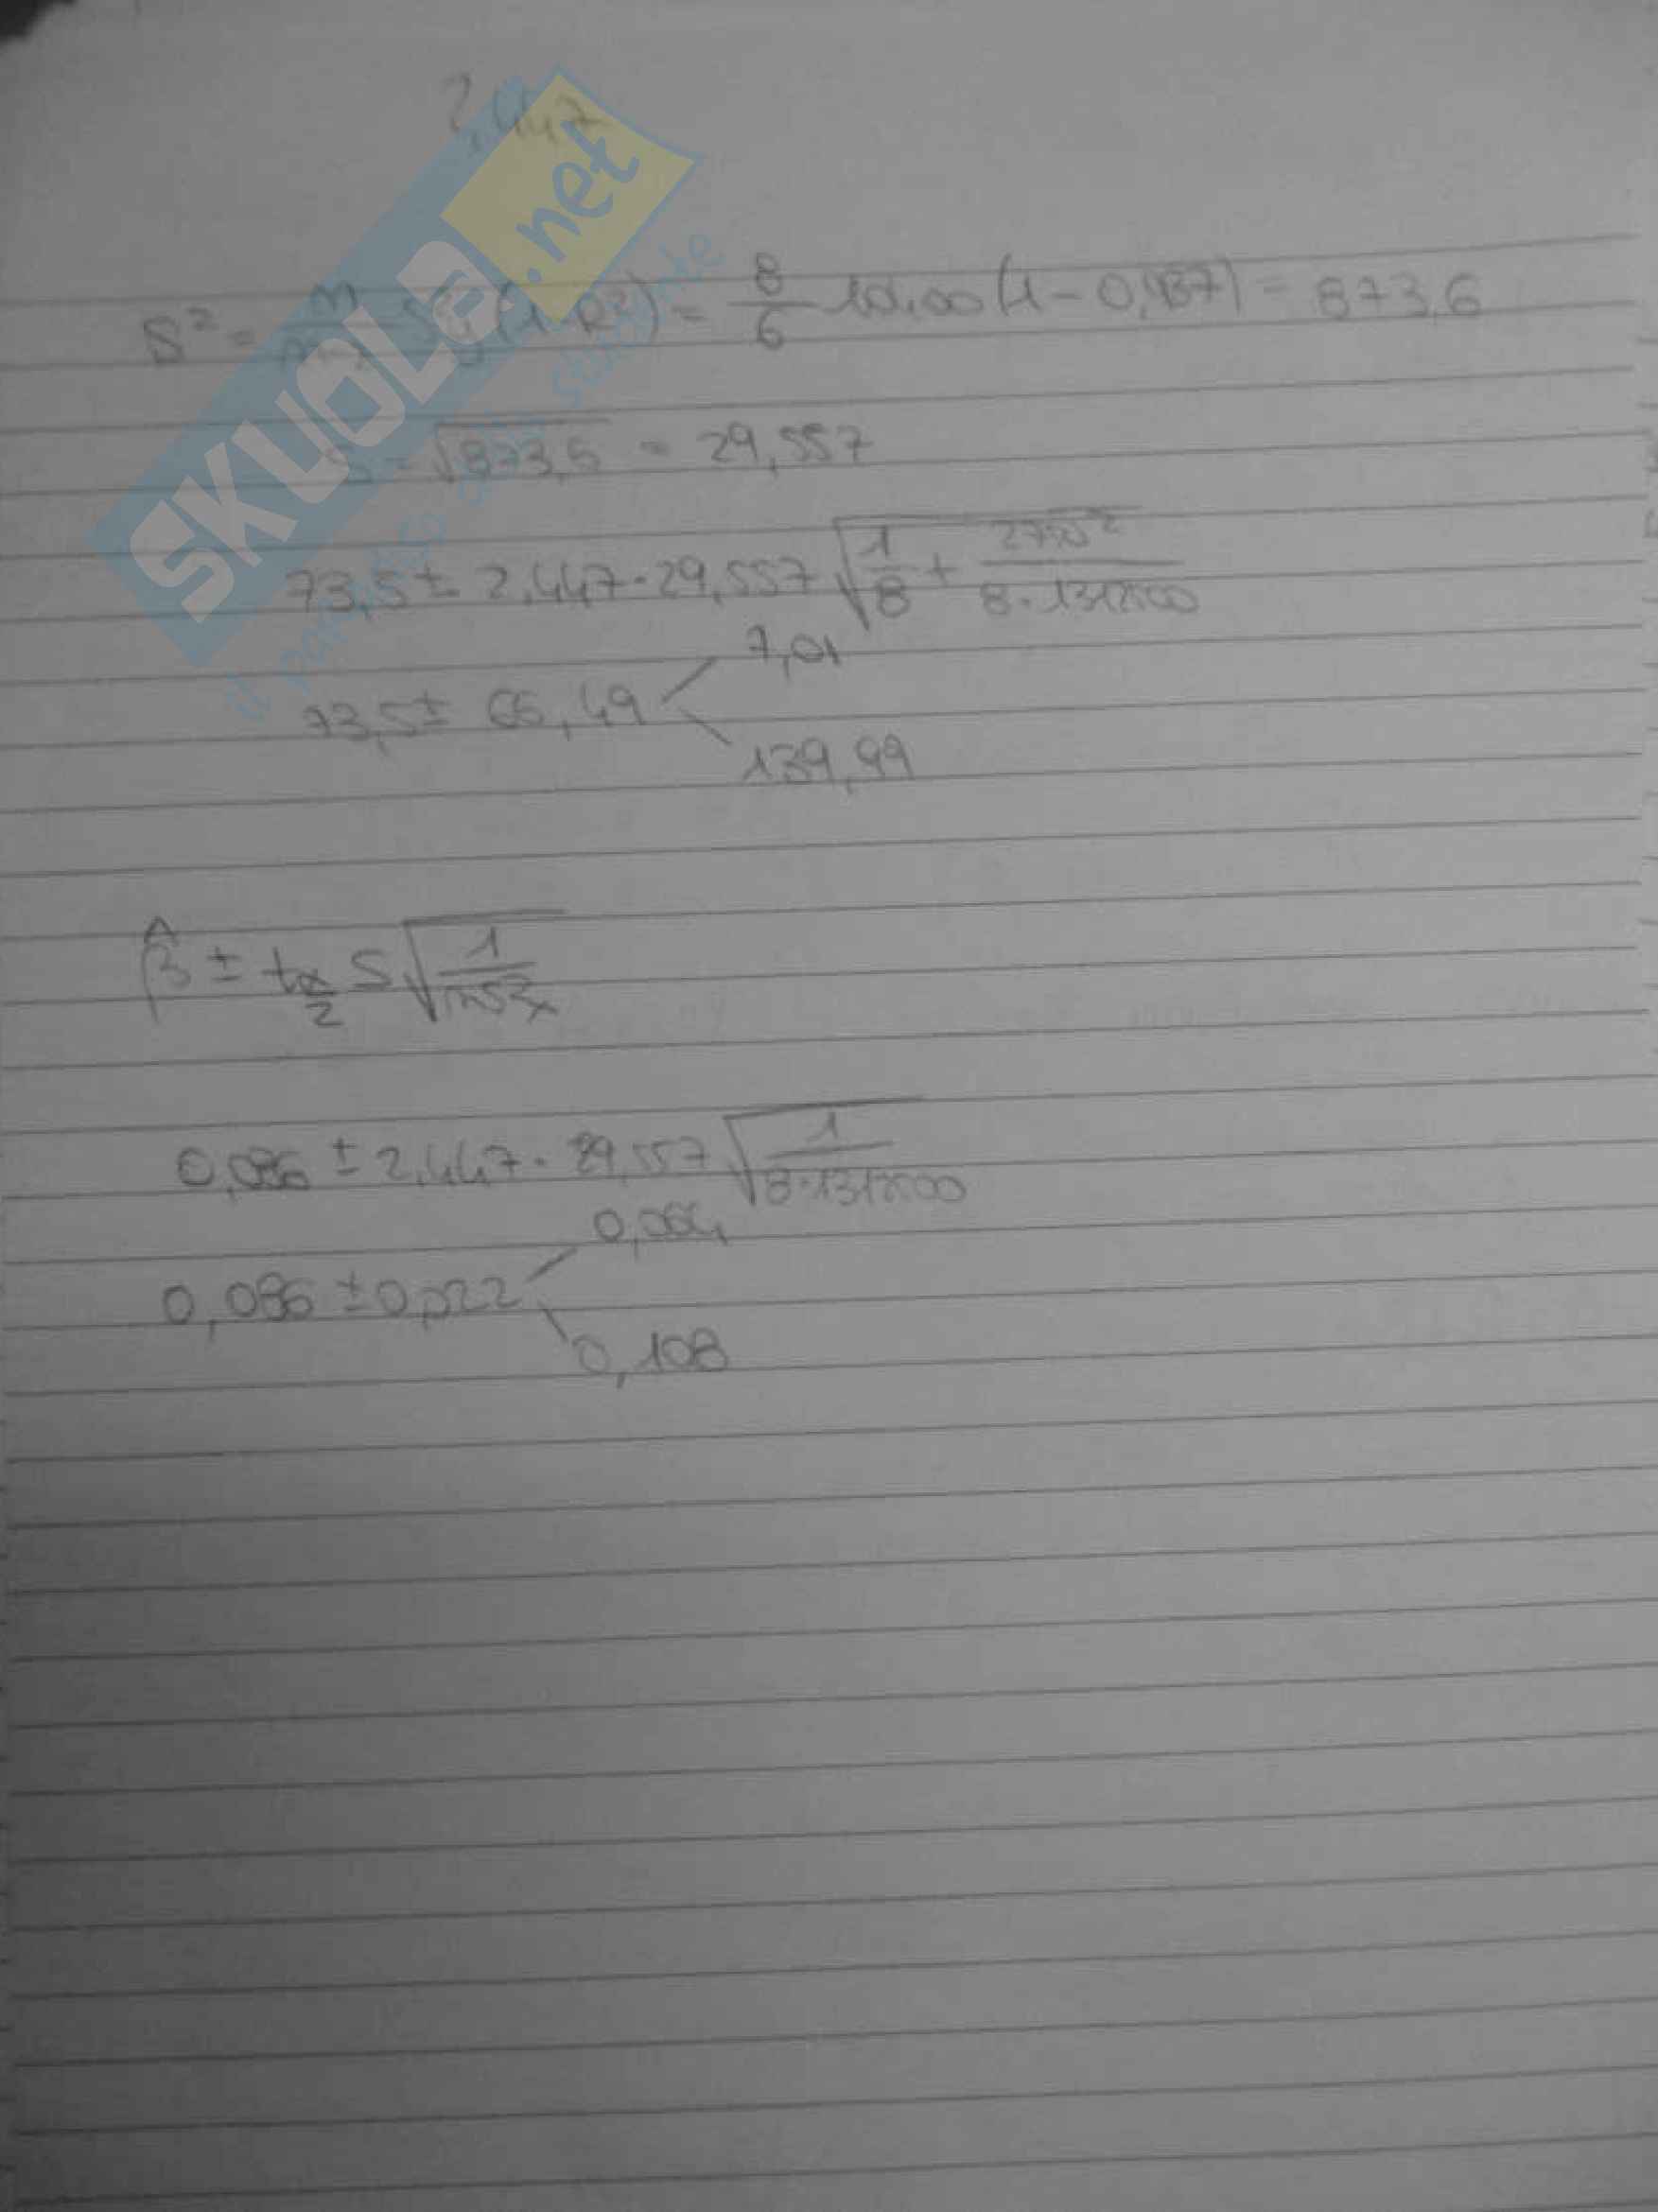 2,447
SKUOLA.net
S² = n/n-2 S²y (1-R²) = 8/6 (1 - 0,937) = 873,6
S = √873,6 = 29,557
73,5 ± 2,447 · 29,557 √1/8 + 2750²/
7,01
73,5 ± 66,49
139,99
β̂ ± tα/2 S √1/nS²x
0,086 ± 2,447 · 29,557 √1/
0,064
0,086 ± 0,022
0,108